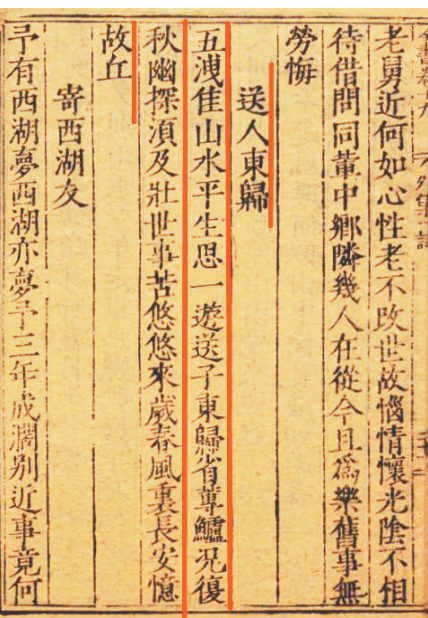 老舅近何如心性老不改世故惱情懷光陰不相
待借問同輩中鄉隣幾人在從今且爲樂舊事無
勞悔
送人東歸
五洩佳山水平生思一遊送子東歸省蓴鱸况復
秋幽探須及壯世事苦悠悠來歲春風裏長安憶
故丘
寄西湖友
予有西湖夢西湖亦夢予三年成濶别近事竟何